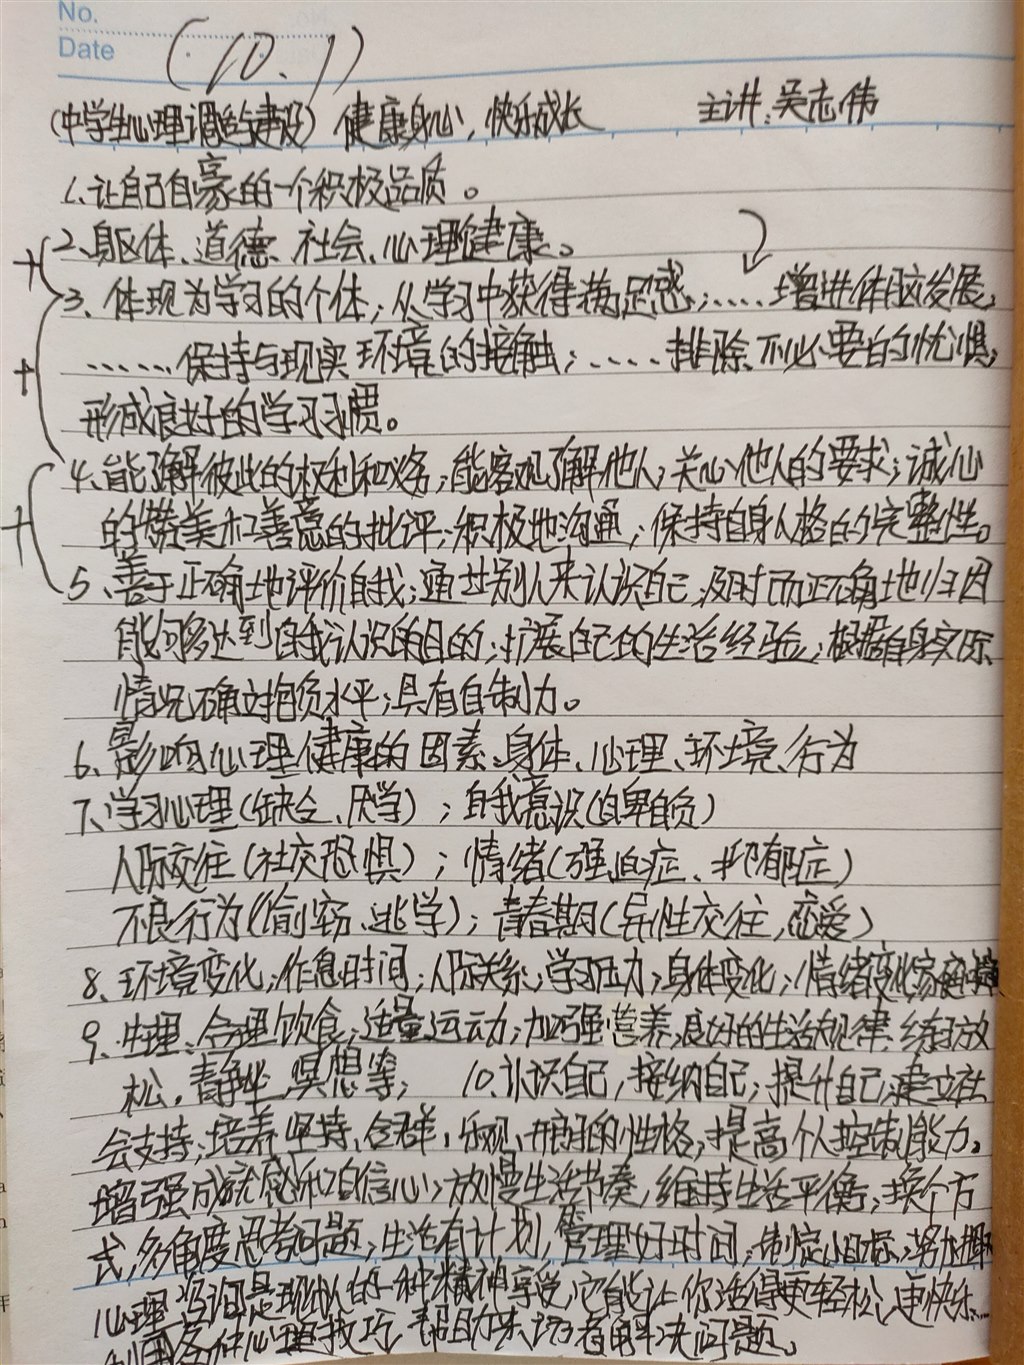 No.
Date
(10.1)
(中学生心理调适与建设) 健康身心,快乐成长 主讲:吴志伟
1、让自己自豪的一个积极品质。
2、身区体、道德、社会、心理健康。
3、体现为学习的个体;从学习中获得满足感;……增进体脑发展;
……保持与现实环境的接触;……排除不必要的忧惧;
形成良好的学习习惯。
4、能了解彼此的权利和义务;能客观了解他人;关心他人的要求;诚心
的赞美和善意的批评;积极地沟通;保持自身人格的完整性。
5、善于正确地评价自我;通过别人来认识自己,及时而正确地归因
能够达到自我认识的目的;扩展自己的生活经验;根据自身实际
情况确立抱负水平;具有自制力。
6、影响心理健康的因素、身体、心理、环境、行为
7、学习心理(厌学);自我意识(自卑自负)
人际交往(社交恐惧);情绪(强迫症、抑郁症)
不良行为(偷窃、逃学);青春期(异性交往,恋爱)
8、环境变化;作息时间;人际关系;学习压力;身体变化;情绪变化家庭
9、生理、合理饮食;适量运动;加强营养,良好的生活规律,练习放
松,静坐,冥想等; 10、认识自己,接纳自己;提升自己,建立社
会支持;培养坚持、合群、乐观、开朗的性格;提高个人控制能力。
增强成就感和自信心;放慢生活节奏,维持生活平衡;换个方
式,多角度思考问题;生活有计划,管理好时间;制定小目标;努力
心理咨询是现代人的一种精神享受,它能让你活得更轻松、更快乐……
利用各种心理技巧,帮助来访者解决问题。